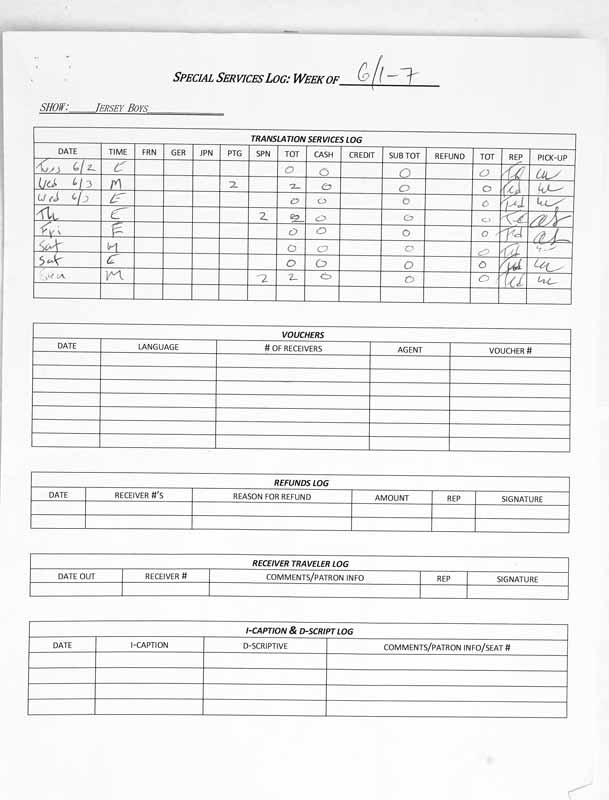 SPECIAL SERVICES LOG: WEEK OF 6/1-7
SHOW: JERSEY BOYS
TRANSLATION SERVICES LOG
DATE TIME FRN GER JPN PTG SPN TOT CASH CREDIT SUB TOT REFUND TOT REP PICK-UP
Tues 6/2 E 0 0 0 0
Wed 6/3 M 2 2 0 0 0 Ted
Wed 6/3 E 0 0 0 0 Ted
Th E 2 0 0 0
Fri E 0 0 0 0 Ted
Sat M 0 0 0 0 Ted
Sat E 0 0 0 0 Ted
Sun M 2 2 0 0 0 Ted
VOUCHERS
DATE LANGUAGE # OF RECEIVERS AGENT VOUCHER #
REFUNDS LOG
DATE RECEIVER #'S REASON FOR REFUND AMOUNT REP SIGNATURE
RECEIVER TRAVELER LOG
DATE OUT RECEIVER # COMMENTS/PATRON INFO REP SIGNATURE
I-CAPTION & D-SCRIPT LOG
DATE I-CAPTION D-SCRIPTIVE COMMENTS/PATRON INFO/SEAT #